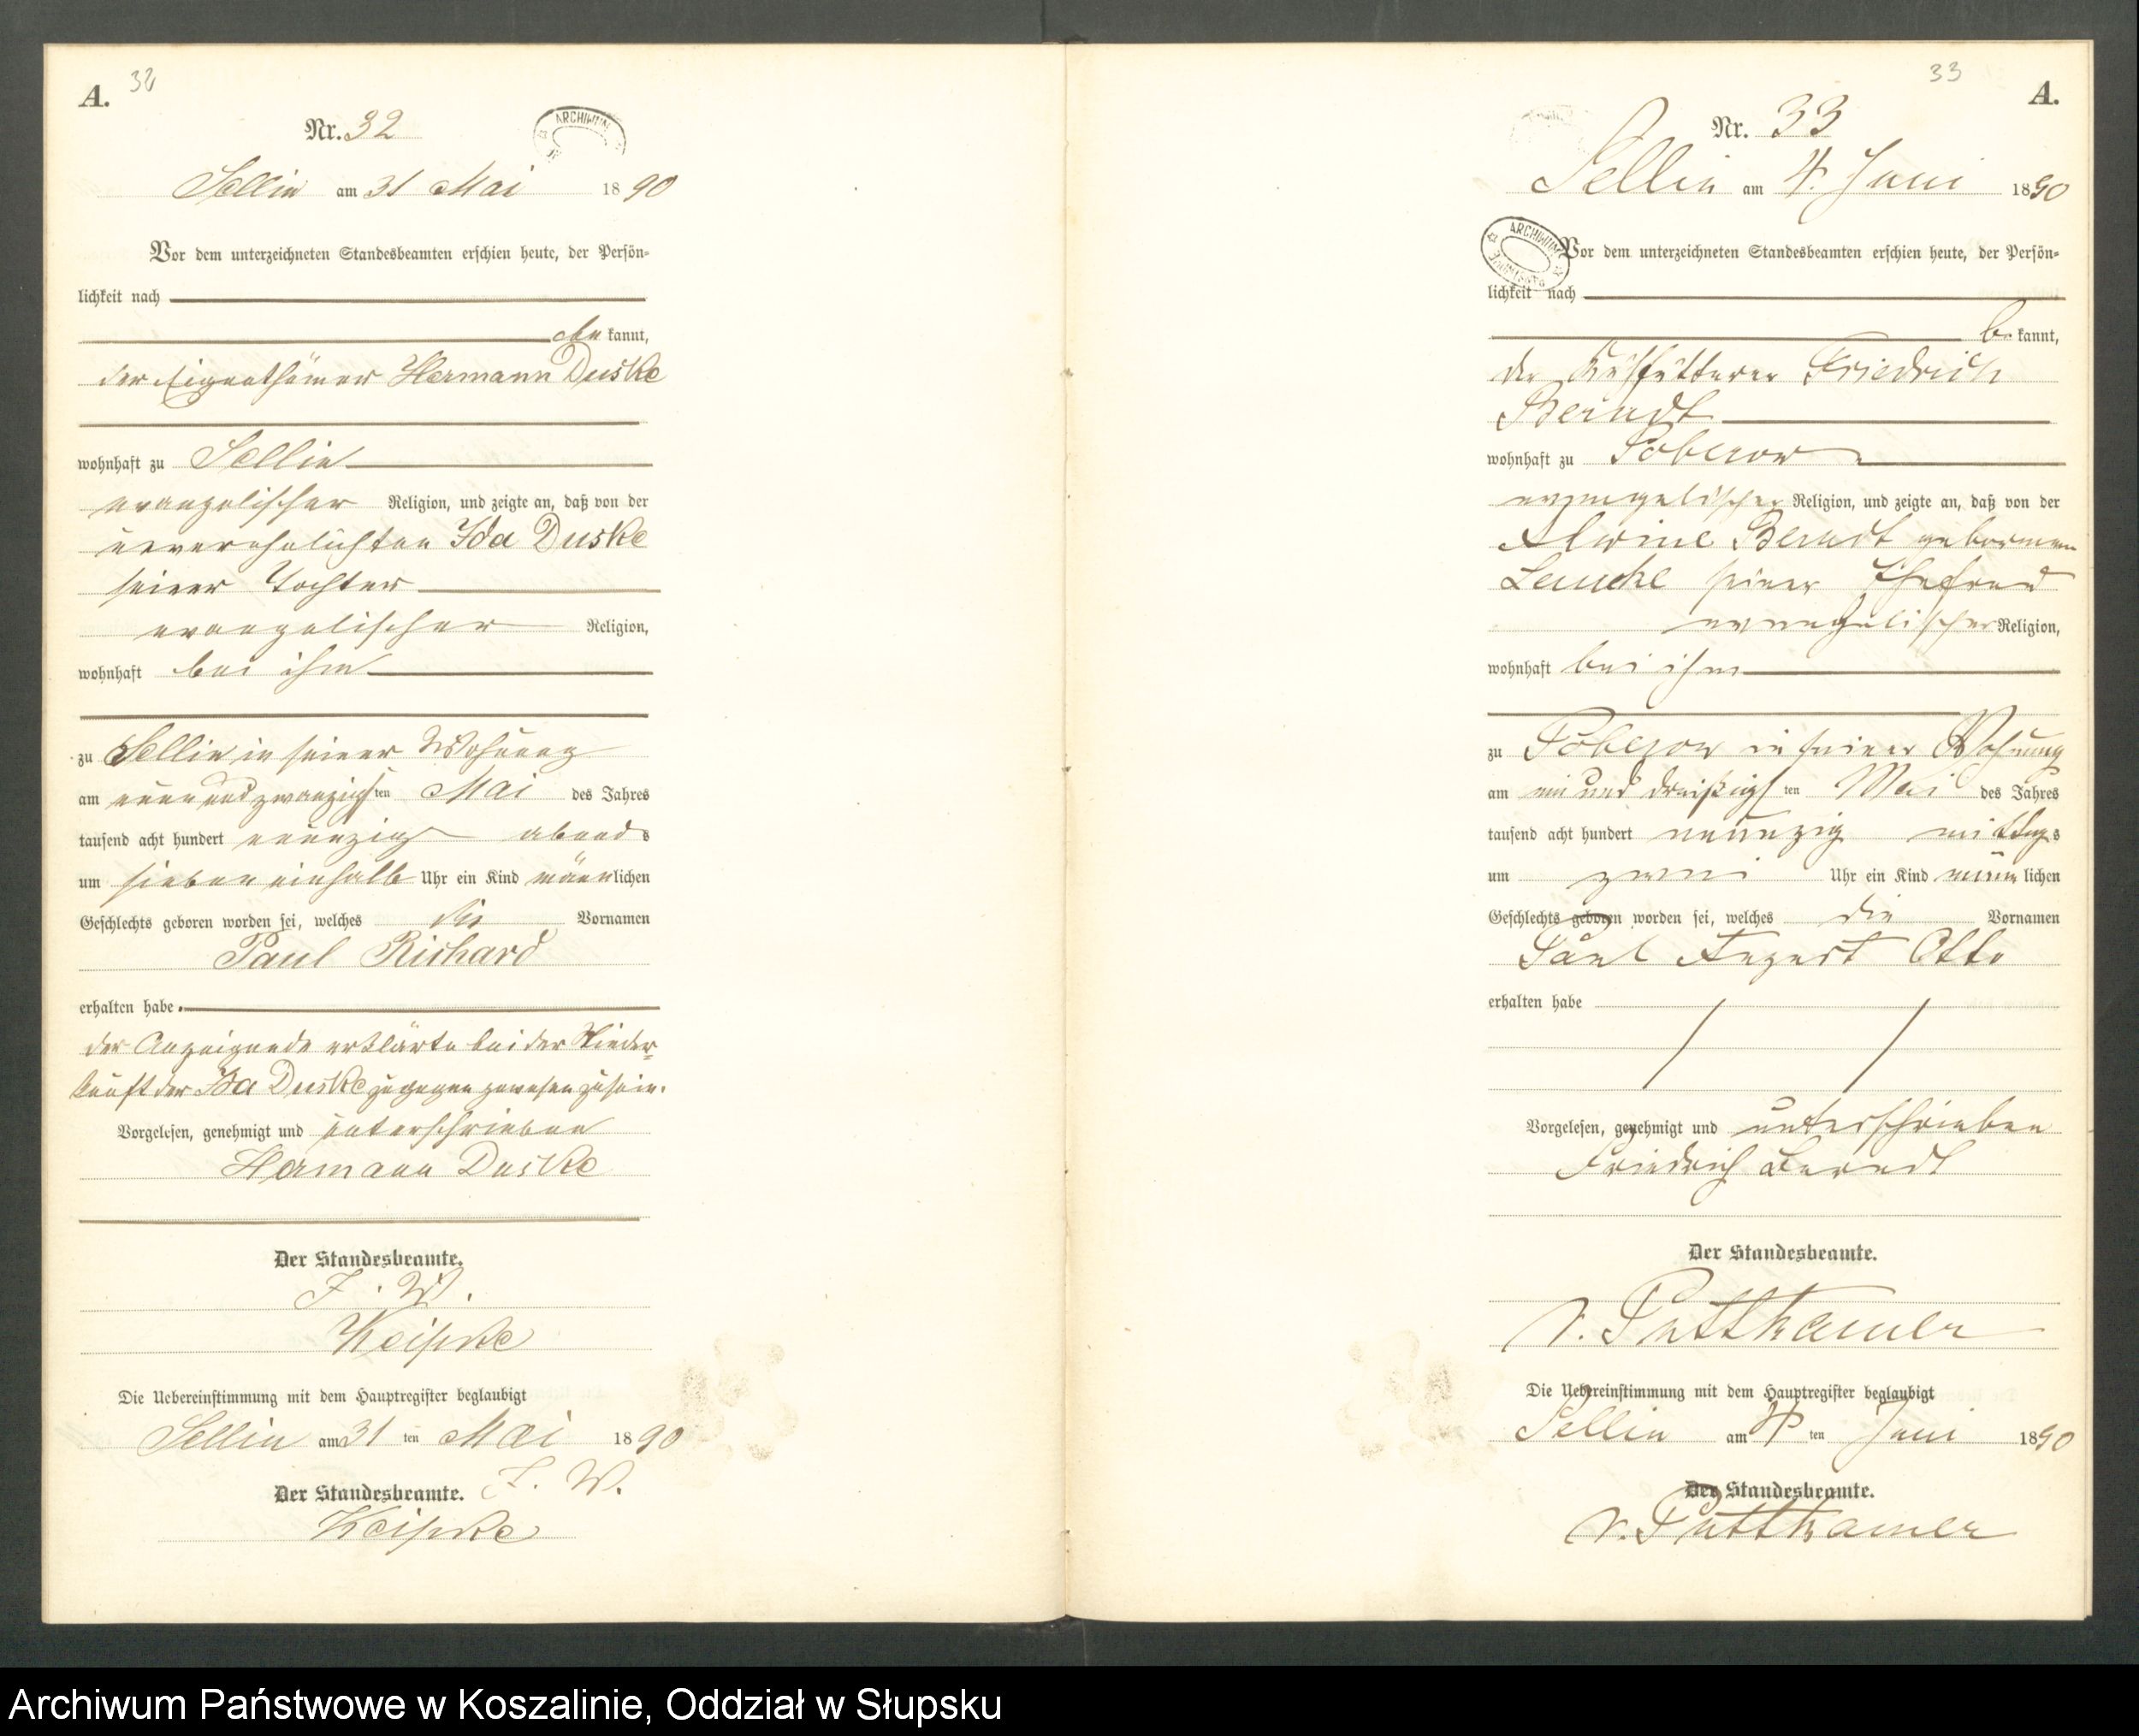 A.
32
Nr. 32
ARCHIWUM
Sellin am 31 Mai 1890
Vor dem unterzeichneten Standesbeamten erschien heute, der Persön-
lichkeit nach
be kannt,
der Eigenthümer Hermann Duske
wohnhaft zu Sellin
evangelischer Religion, und zeigte an, daß von der
unverehelichten Ida Duske
seiner Tochter
evangelischer Religion,
wohnhaft bei ihm
zu Sellin in seiner Wohnung
am neun und zwanzigsten Mai des Jahres
tausend acht hundert neunzig abends
um sieben einhalb Uhr ein Kind männlichen
Geschlechts geboren worden sei, welches die Vornamen
Paul Richard
erhalten habe.
der Anzeigende erklärte bei der Nieder-
kunft der Ida Duske zugegen gewesen zu sein.
Vorgelesen, genehmigt und unterschrieben
Hermann Duske
Der Standesbeamte.
J. V.
Die Uebereinstimmung mit dem Hauptregister beglaubigt
Sellin am 31 ten Mai 1890
Der Standesbeamte. J. V.
33
A.
Nr. 33
Sellin am 4. Juni 1890
ARCHIWUM
Vor dem unterzeichneten Standesbeamten erschien heute, der Persön-
lichkeit nach
be kannt,
der Kuhfütterer Friedrich
Berndt
wohnhaft zu Poberow
evangelischer Religion, und zeigte an, daß von der
Alwine Berndt geborenen
seiner Ehefrau
evangelischer Religion,
wohnhaft bei ihm
zu Poberow in seiner Wohnung
am ein und dreißigsten Mai des Jahres
tausend acht hundert neunzig mittags
um zwei Uhr ein Kind männlichen
Geschlechts geboren worden sei, welches die Vornamen
Paul August Otto
erhalten habe
Vorgelesen, genehmigt und unterschrieben
Friedrich Berndt
Der Standesbeamte.
v. Puttkamer
Die Uebereinstimmung mit dem Hauptregister beglaubigt
Sellin am 4 ten Juni 1890
Der Standesbeamte.
v. Puttkamer
Archiwum Państwowe w Koszalinie, Oddział w Słupsku